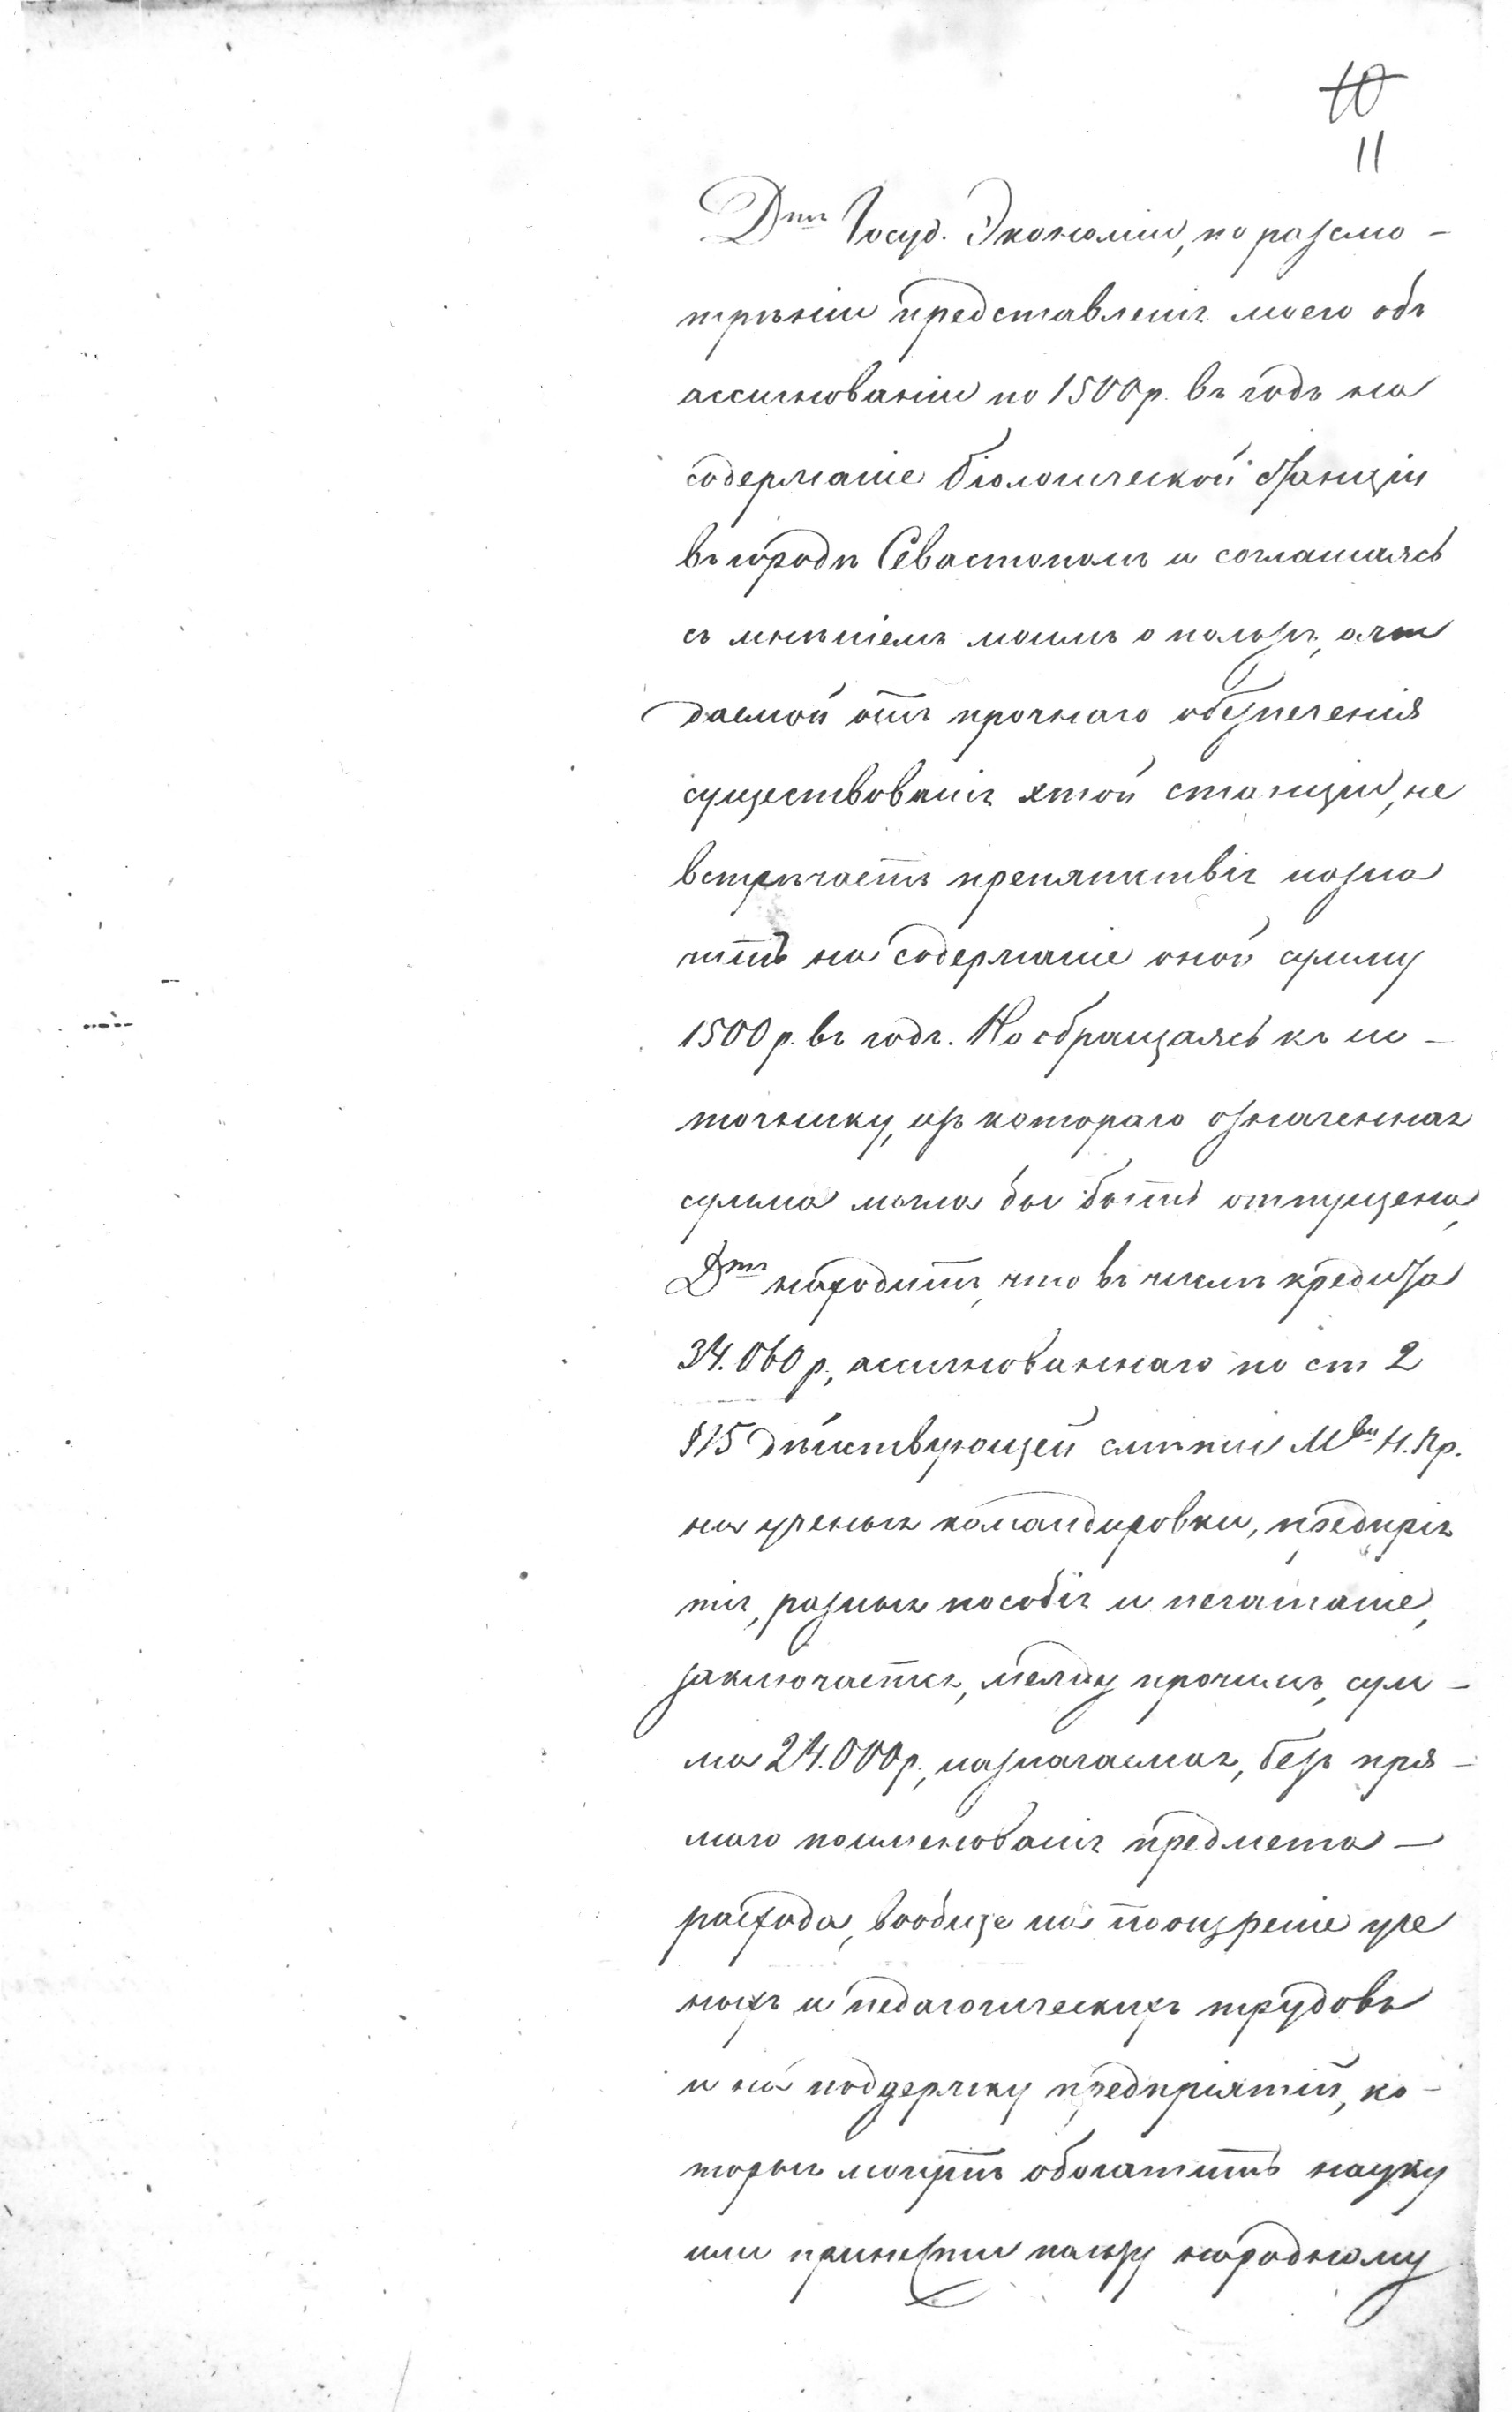 10
11
Дтъ Госуд. Экономіи, по разсмо-
трѣніи представленія моего объ
ассигнованіи по 1500 р. въ годъ на
содержаніе біологической станціи
въ городѣ Севастополѣ и соглашаясь
съ мнѣніемъ моимъ о пользѣ, ожи
даемой отъ прочнаго обезпеченія
существованія этой станціи, не
встрѣчаетъ препятствія назна
чить на содержаніе оной сумму
1500 р. въ годъ. Но обращаясь къ ис-
точнику, изъ котораго означенная
сумма могла бы быть отпущена,
Дтъ находитъ, что въ числѣ кредита
34.060 р., ассигнованнаго по ст 2
§ 15 дѣйствующей смѣты Мва Н. Пр.
на ученыя командировки, предпрія
тія, разныя пособія и печатаніе,
заключается, между прочимъ, сум-
ма 24.000 р., назначаемая, безъ пря-
маго поименованія предмета
расхода, вообще на поощреніе уче
ныхъ и педагогическихъ трудовъ
и на поддержку предпріятій, ко-
торыя могутъ обогатить науку
или принести пользу народному